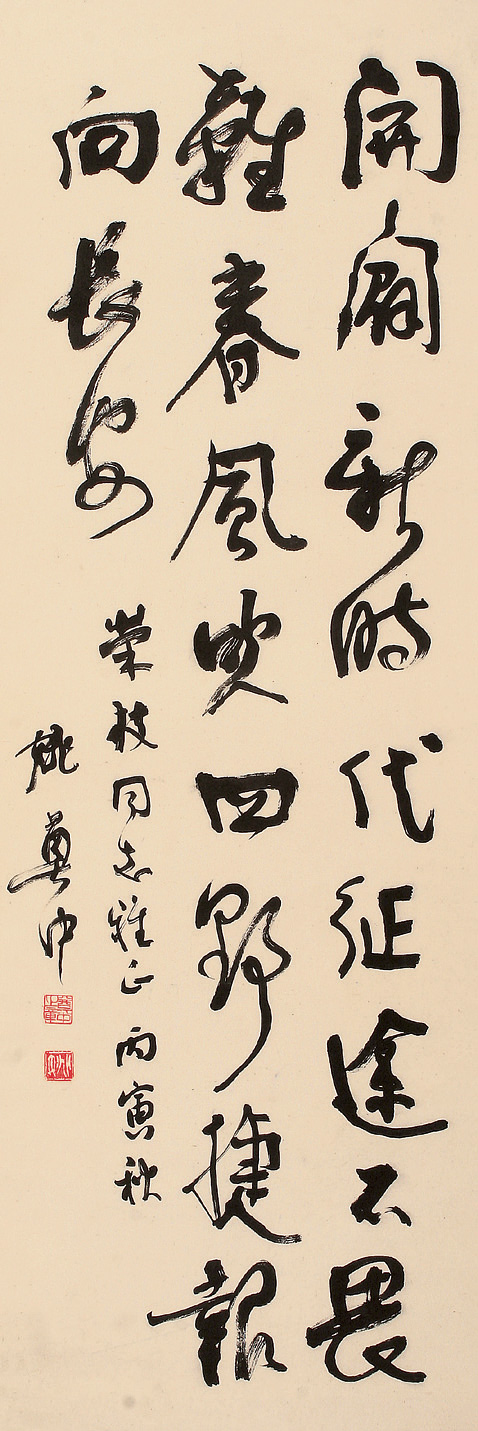 開闢新時代征途不畏
艱春風吹四野捷報
向長安
榮枝同志雅正 丙寅秋
姚奠中